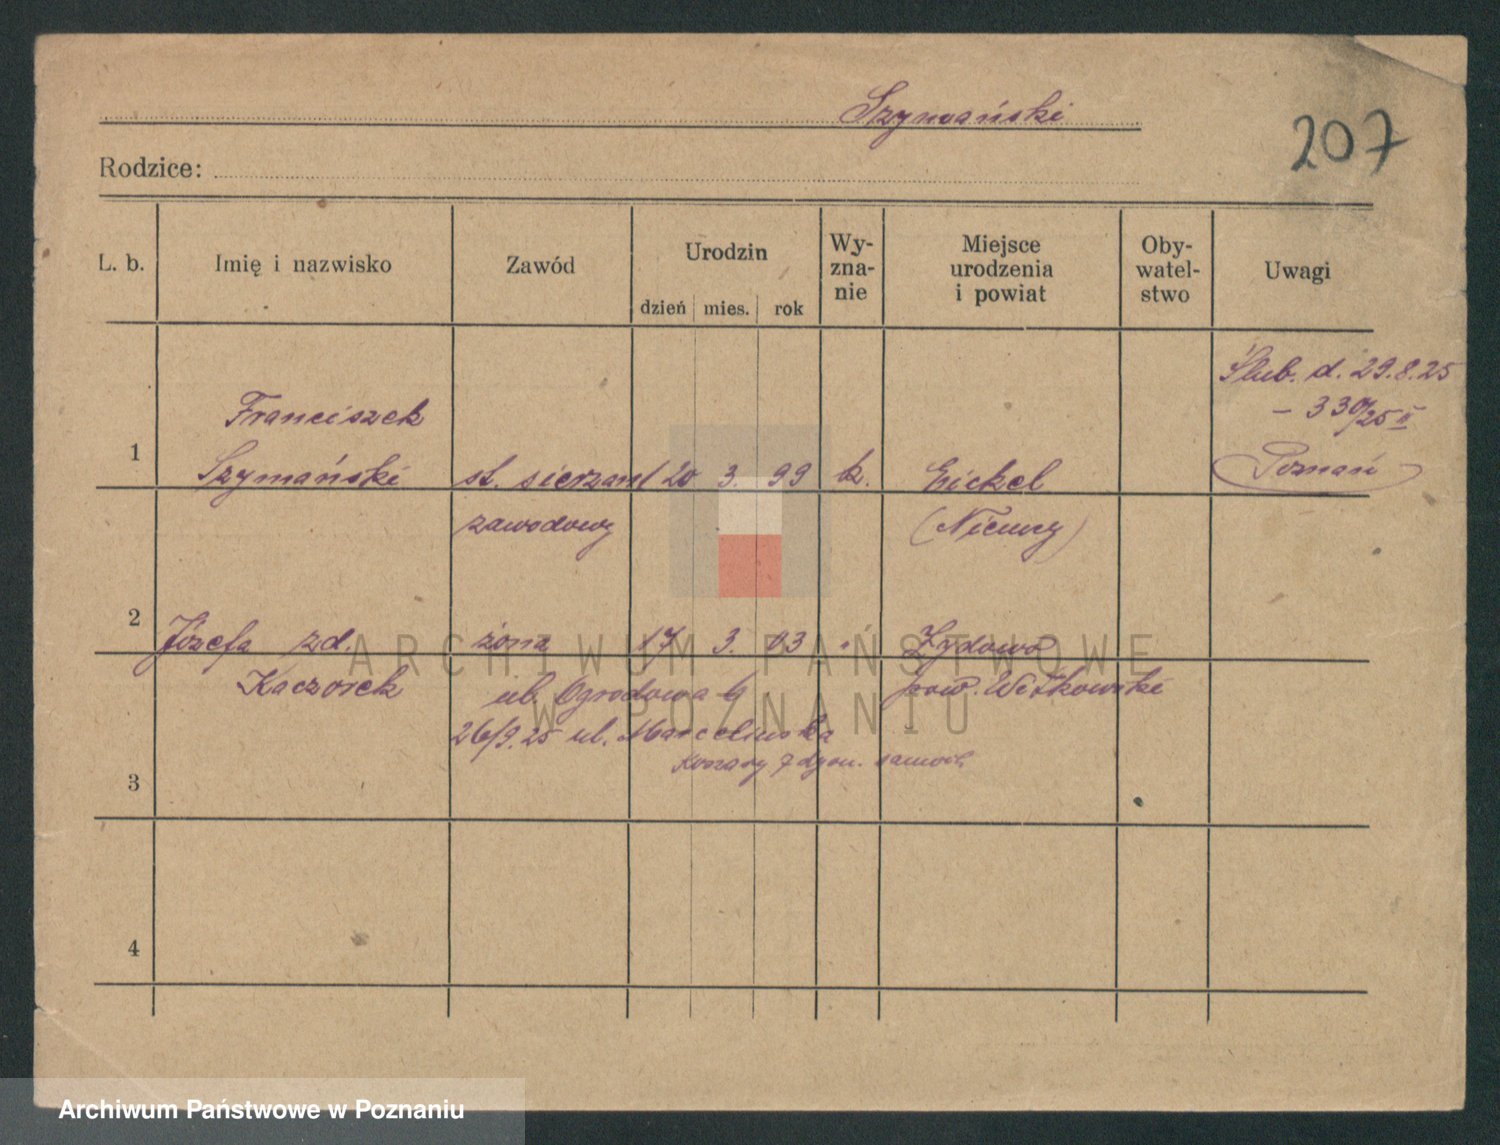 Szymański
207
Rodzice:
L. b. Imię i nazwisko Zawód Urodzin dzień mies. rok Wy-zna-nie Miejsce urodzenia i powiat Oby-watel-stwo Uwagi
Ślub. d. 29.8.25
– 330/25 II
Poznań
1 Franciszek
Szymański st. sierżant 20 3. 99 k. Eickel
zawodowy (Niemcy)
2 Józefa zd. żona 17 3. 03 " Żydowo
Kaczorek pow. Witkowski
ul. Ogrodowa
26/9.25 ul. Marcelińska
Koszary 7 dyon. samoch.
3
4
ARCHIWUM PAŃSTWOWE
W POZNANIU
Archiwum Państwowe w Poznaniu